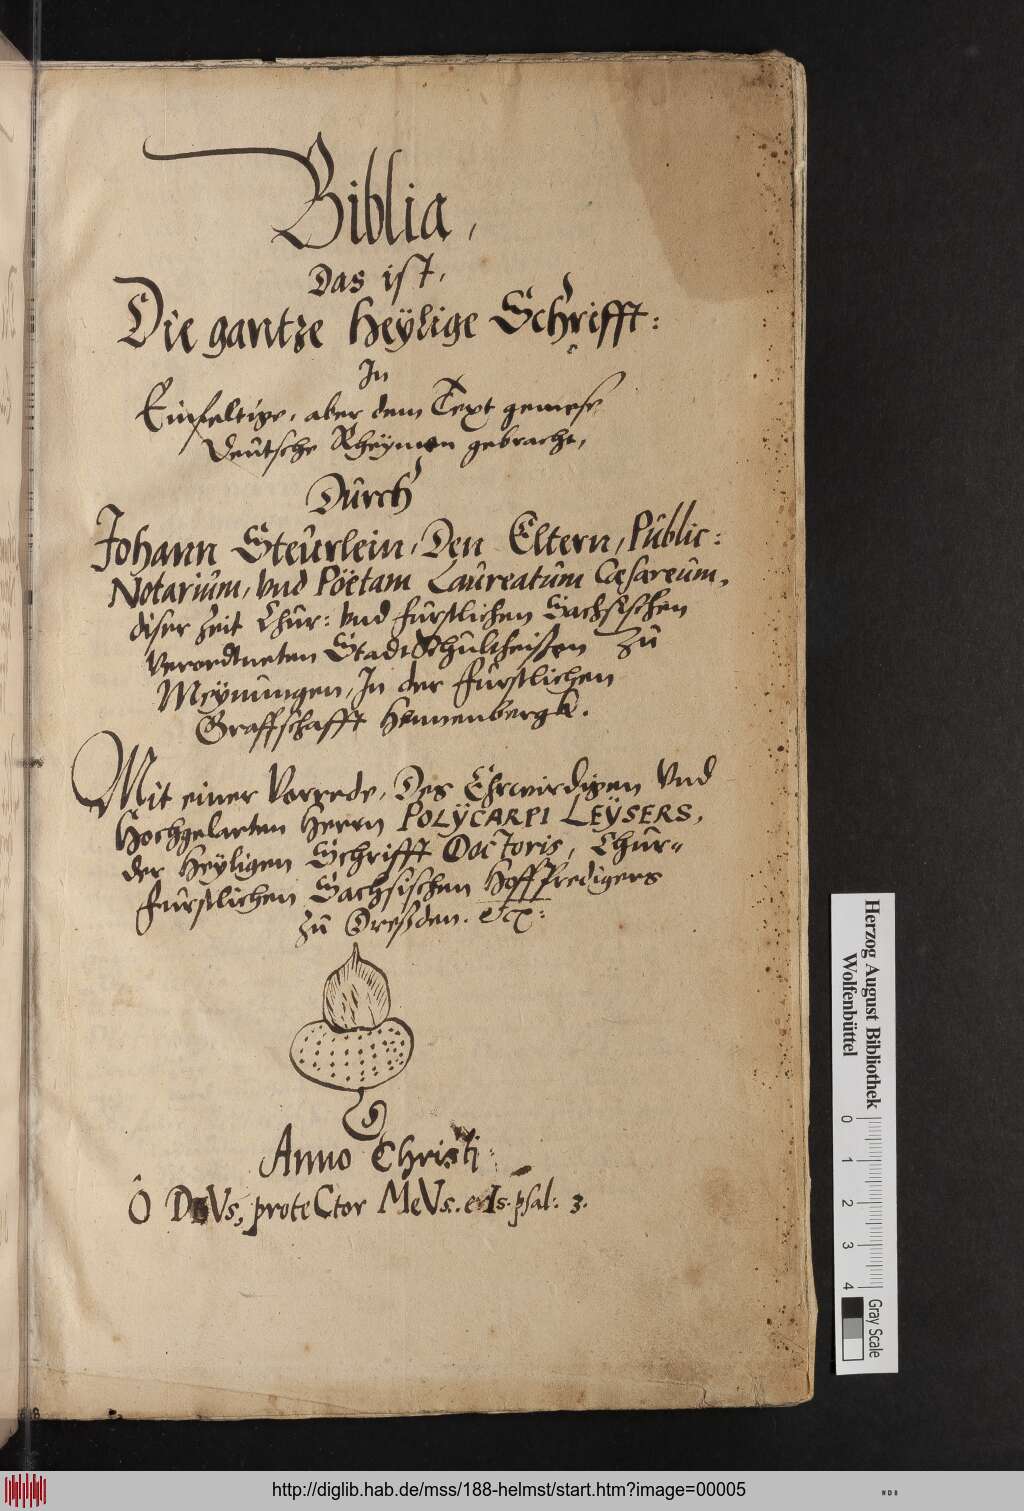 Biblia,
Das ist,
Die gantze Heÿlige Schrifft:
In
Einfeltige, aber dem Text gemese
Deutsche Rheÿmen gebracht,
Durch
Johann Steurlein, Den Eltern, Public:
Notarium, Vnd Pöetam Laureatum Cæsareum,
diser Zeit Chur: Vnd fürstlichen Sachsischen
Verordtneten StadtSchultheissen zu
Meÿnungen, In der fürstlichen
Graffschafft Hennenbergk.
Mit einer Vorrede, Des Ehrwirdigen Vnd
Hochgelarten Herrn POLŸCARPI LEŸSERS,
der Heÿligen Schrifft Doctoris, Chur=
fürstlichen Sachsischen HoffPredigers
zu Dreßden. etc:
Anno Christi:
Ô DeVs, proteCtor MeVs. es. psal: 3.
Herzog August Bibliothek
Wolfenbüttel
0 1 2 3 4
Gray Scale
http://diglib.hab.de/mss/188-helmst/start.htm?image=00005